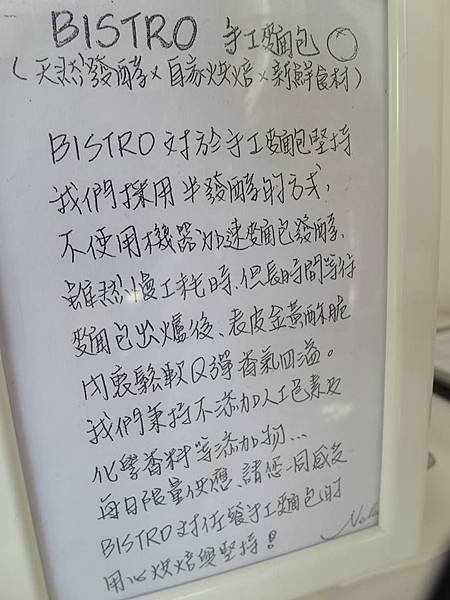 BISTRO 手工麵包
(天然發酵×自家烘焙×新鮮食材)
BISTRO 対於手工麵包堅持
我們採用半發酵的方式,
不使用機器加速麵包發酵、
雖然慢工耗時、但長時間等待
麵包出爐後、表皮金黃酥脆
內裏鬆軟Q彈香氣四溢。
我們秉持不添加人工色素及
化學香料等添加物...
每日限量供應、請您一同感受
BISTRO 对佐餐手工麵包的
用心烘焙與堅持!